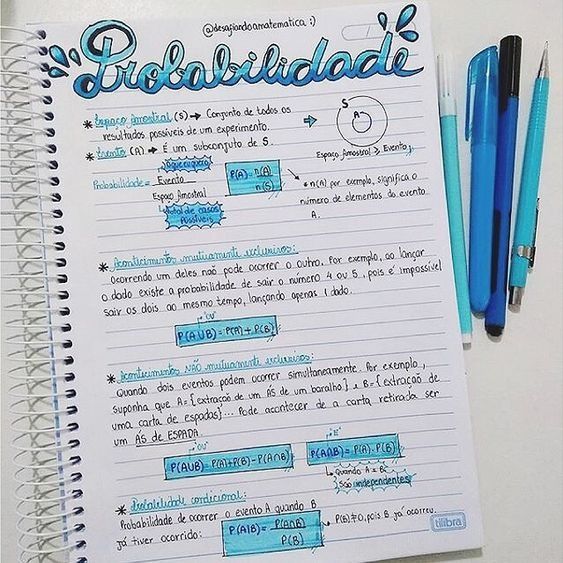 @desafiandoamatematica :)
Probabilidade
* Espaço Amostral (S) → Conjunto de todos os
resultados possíveis de um experimento.
* Evento (A) → É um subconjuto de S.
S
A
Espaço Amostral > Evento
O que eu quero
Probabilidade = Evento
Espaço Amostral
total de casos
possíveis
P(A) = n(A)
n(S)
* n(A) por exemplo, significa o
número de elementos do evento
A.
* Acontecimentos mutuamente exclusivos:
Ocorrendo um deles naõ pode ocorrer o outro. Por exemplo, ao lançar
o dado existe a probabilidade de sair o numero 4 ou 5, pois é impossível
sair os dois ao mesmo tempo, lançando apenas 1 dado.
"OU"
P(A∪B) = P(A) + P(B)
* Acontecimentos NÃO mutuamente exclusivos:
Quando dois eventos podem ocorrer simultaneamente. Por exemplo,
suponha que A = {extraçaõ de um ÁS de um baralho} e B = {extraçaõ de
uma carta de espadas}... Pode acontecer de a carta retirada ser
um ÁS de ESPADA.
"OU"
P(A∪B) = P(A)+P(B) - P(A∩B)
"E"
P(A∩B) = P(A) . P(B)
Quando A e B
São independentes
* Probabilidade condicional:
Probabilidade de ocorrer o evento A quando B
já tiver ocorrido:
P(A|B) = P(A∩B)
P(B)
* P(B)≠0, pois B já ocorreu.
tilibra